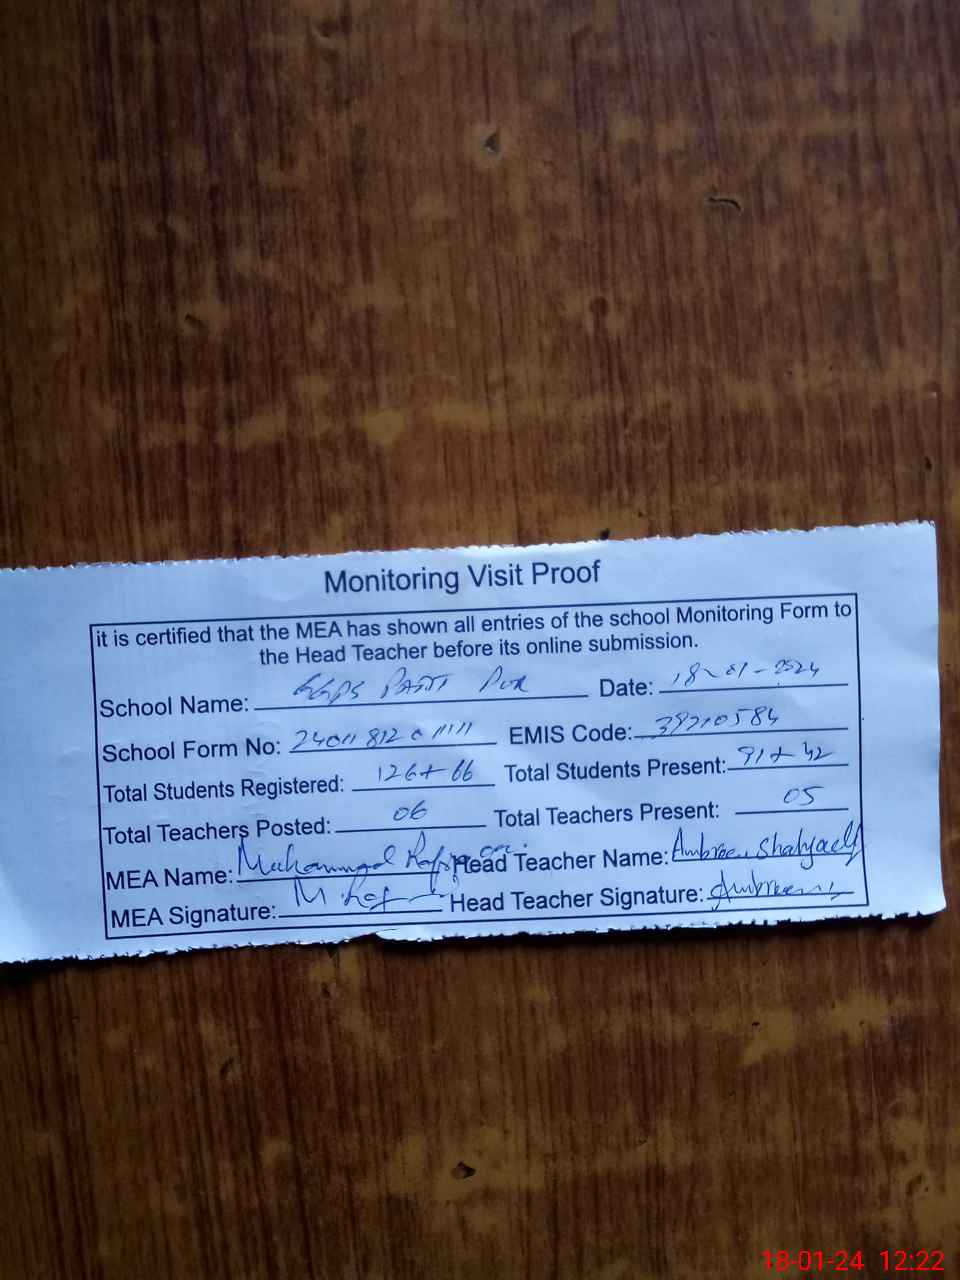 Monitoring Visit Proof
it is certified that the MEA has shown all entries of the school Monitoring Form to
the Head Teacher before its online submission.
School Name: GGPS Pur Date: 18-01-2024
School Form No: EMIS Code: 39210584
Total Students Registered: 126+66 Total Students Present: 91+42
Total Teachers Posted: 06 Total Teachers Present: 05
MEA Name: Muhammad Head Teacher Name: Ambreen
MEA Signature: Head Teacher Signature: Ambreen
18-01-24 12:22